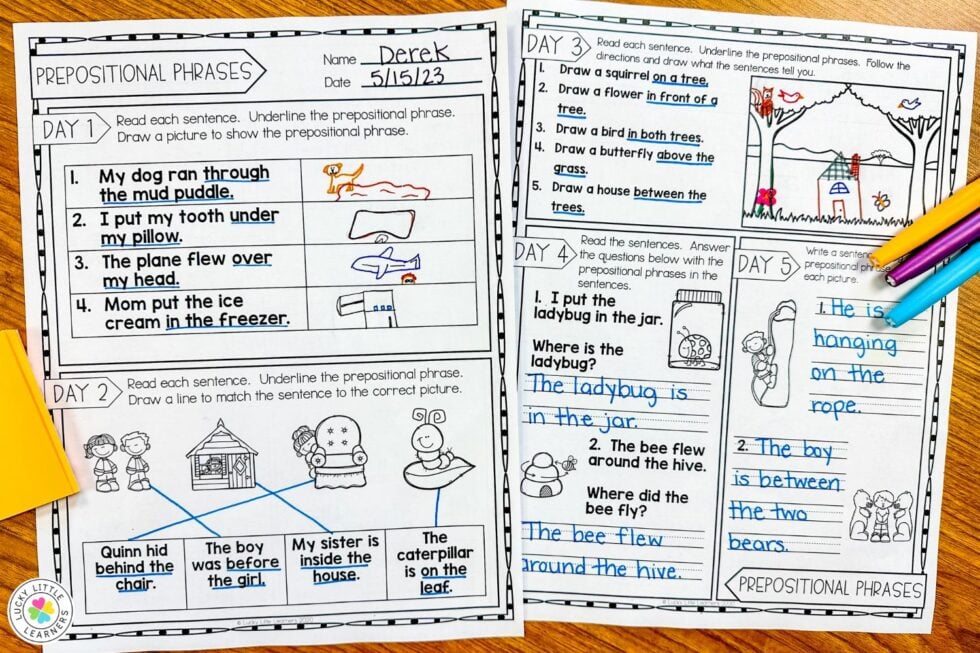 PREPOSITIONAL PHRASES
Name Derek
Date 5/15/23
DAY 1
Read each sentence. Underline the prepositional phrase.
Draw a picture to show the prepositional phrase.
1. My dog ran through
the mud puddle.
2. I put my tooth under
my pillow.
3. The plane flew over
my head.
4. Mom put the ice
cream in the freezer.
DAY 2
Read each sentence. Underline the prepositional phrase.
Draw a line to match the sentence to the correct picture.
Quinn hid
behind the
chair.
The boy
was before
the girl.
My sister is
inside the
house.
The
caterpillar
is on the
leaf.
© Lucky Little Learners 2020
LUCKY LITTLE LEARNERS
DAY 3
Read each sentence. Underline the prepositional phrases. Follow the
directions and draw what the sentences tell you.
1. Draw a squirrel on a tree.
2. Draw a flower in front of a
tree.
3. Draw a bird in both trees.
4. Draw a butterfly above the
grass.
5. Draw a house between the
trees.
DAY 4
Read the sentences. Answer
the questions below with the
prepositional phrases in the
sentences.
1. I put the
ladybug in the jar.
Where is the
ladybug?
The ladybug is
in the jar.
2. The bee flew
around the hive.
Where did the
bee fly?
The bee flew
around the hive.
DAY 5
Write a
prepositional
each picture.
1. He is
hanging
on the
rope.
2. The boy
is between
the two
bears.
PREPOSITIONAL PHRASES
© Lucky Little Learners 2020